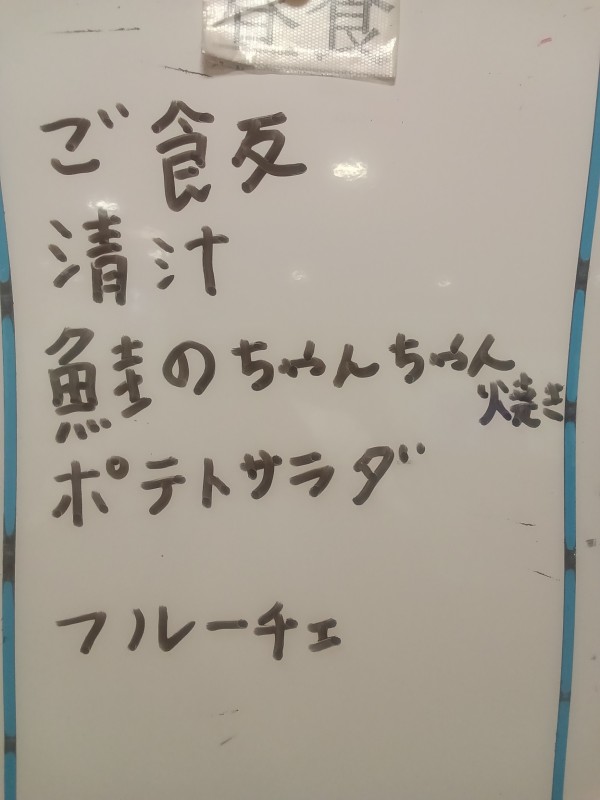 ご飯
清汁
鮭のちゃんちゃん
焼き
ポテトサラダ
フルーチェ